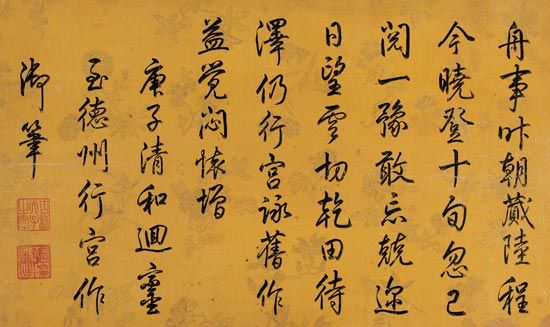 舟事昨朝蕆陸程
今曉登十旬忽已
閱一豫敢忘兢迩
日望雲切乾田待
澤仍行宮詠舊作
益觉悶懷增
庚子清和迴鑾
至德州行宮作
御筆